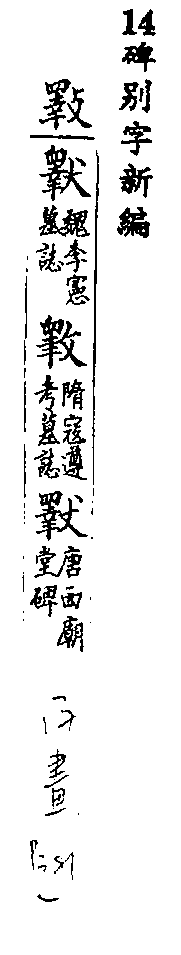 14碑别字新編
斁
魏李憲
墓誌
隋寇遵
考墓誌
唐西廟
堂碑
畫